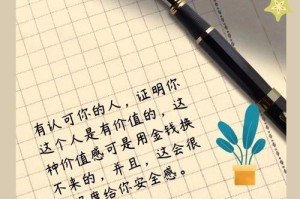 有认可你的人，证明你
这个人是有价值的，这
种价值感可是用金钱换
不来的，并且，这会很
度给你安全感。